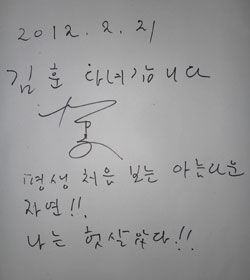 2012. 2. 21
김훈 다녀갑니다
평생 처음 보는 아름다운
자연!!
나는 헛살았다!!